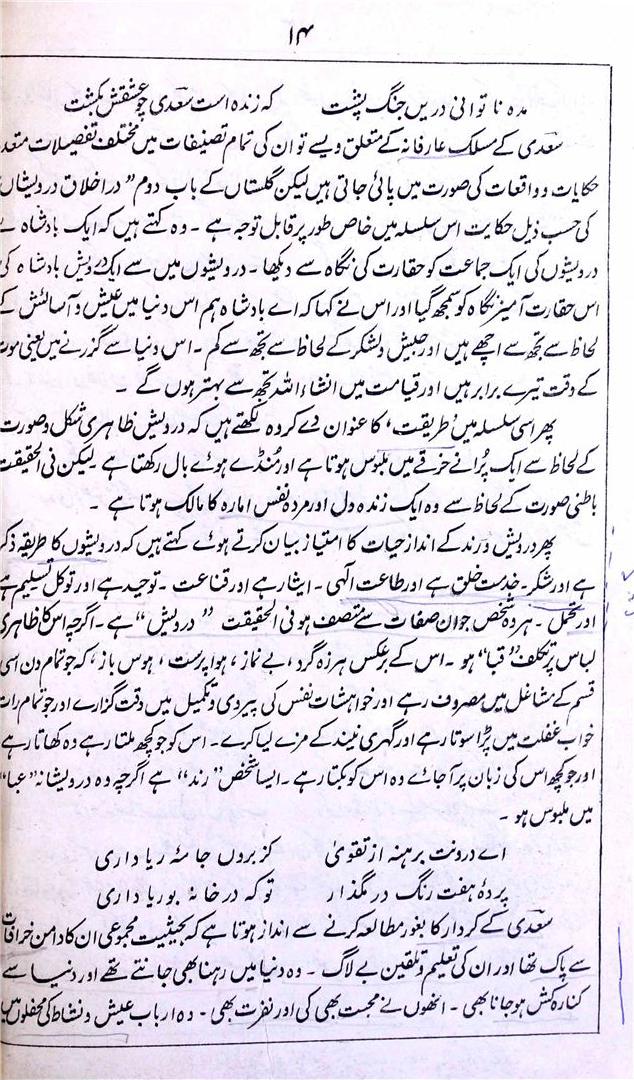 ۱۴
مدہ ناتوانی دریں جنگ پشت کہ زندہ است سعدی چو عشقش بکشت
سعدی کے مسلک عارفانہ کے متعلق ویسے تو ان کی تمام تصنیفات میں مختلف تفصیلات متعدد
حکایات و واقعات کی صورت میں پائی جاتی ہیں لیکن گلستاں کے باب دوم ”در اخلاق درویشاں
کی حسب ذیل حکایت اس سلسلہ میں خاص طور پر قابل توجہ ہے ۔ وہ کہتے ہیں کہ ایک بادشاہ نے
درویشوں کی ایک جماعت کو حقارت کی نگاہ سے دیکھا ۔ درویشوں میں سے ایک درویش بادشاہ کی
اس حقارت آمیز نگاہ کو سمجھ گیا اور اس نے کہا کہ اے بادشاہ ہم اس دنیا میں عیش و آسائش کے
لحاظ سے تجھ سے اچھے ہیں اور جیش و لشکر کے لحاظ سے تجھ سے کم ۔ اس دنیا سے گزرنے میں یعنی موت
کے وقت تیرے برابر ہیں اور قیامت میں انشاء اللہ تجھ سے بہتر ہوں گے ۔
پھر اسی سلسلہ میں ’طریقت‘ کا عنوان دے کر وہ لکھتے ہیں کہ درویش ظاہری شکل و صورت
کے لحاظ سے ایک پُرانے خرقے میں ملبوس ہوتا ہے اور مُنڈے ہوئے بال رکھتا ہے لیکن فی الحقیقت
باطنی صورت کے لحاظ سے وہ ایک زندہ دل اور مردہ نفس امارہ کا مالک ہوتا ہے ۔
پھر درویش و رند کے انداز حیات کا امتیاز بیان کرتے ہوئے کہتے ہیں کہ درویشوں کا طریقہ ذکر
ہے اور شکر ۔ خدمت خلق ہے اور طاعت الٰہی ۔ ایثار ہے اور قناعت ۔ توحید ہے اور توکل تسلیم ہے
اور تحمل ۔ ہر وہ شخص جو ان صفات سے متصف ہو فی الحقیقت ”درویش“ ہے ۔ اگرچہ اس کا ظاہری
لباس پر تکلف ”قبا“ ہو ۔ اس کے برعکس ہرزہ گرد ، بے نماز ، ہوا پرست ، ہوس باز ، کہ جو تمام دن اسی
قسم کے مشاغل میں مصروف رہے اور خواہشات نفس کی پیروی و تکمیل میں وقت گزارے اور جو تمام رات
خواب غفلت میں پڑا سوتا رہے اور گہری نیند کے مزے لیا کرے ۔ اس کو جو کچھ ملتا رہے وہ کھاتا رہے
اور جو کچھ اس کی زبان پر آجائے وہ اس کو بکتا رہے ۔ ایسا شخص ”رند“ ہے اگرچہ وہ درویشانہ ”عبا“
میں ملبوس ہو ۔
اے درونت برہنہ از تقویٰ کز بروں جامۂ ریا داری
پردۂ ہفت رنگ در مگذار تو کہ در خانہ بوریا داری
سعدی کے کردار کا بغور مطالعہ کرنے سے اندازہ ہوتا ہے کہ بحیثیت مجموعی ان کا دامن خرافات
سے پاک تھا اور ان کی تعلیم و تلقین بے لاگ ۔ وہ دنیا میں رہنا بھی جانتے تھے اور دنیا سے
کنارہ کش ہو جانا بھی ۔ انھوں نے محبت بھی کی اور نفرت بھی ۔ وہ ارباب عیش و نشاط کی محفلوں میں